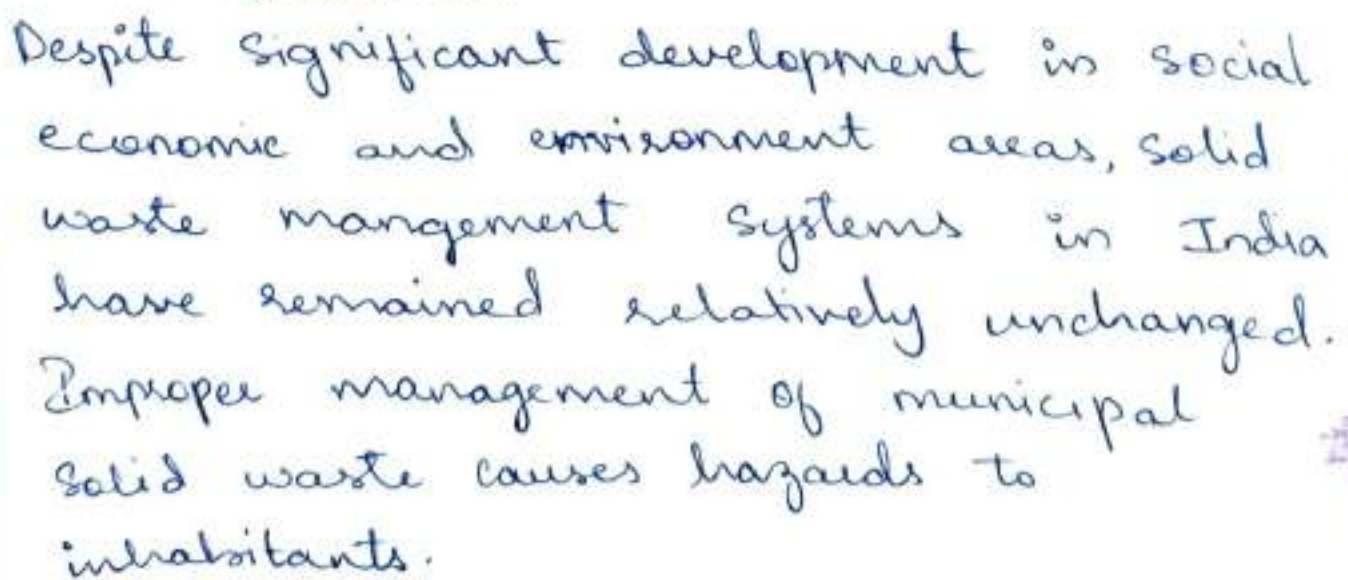 Despite significant development in social
economic and environment areas, solid
waste mangement systems in India
have remained relatively unchanged.
Improper management of municipal
solid waste causes hazards to
inhabitants.